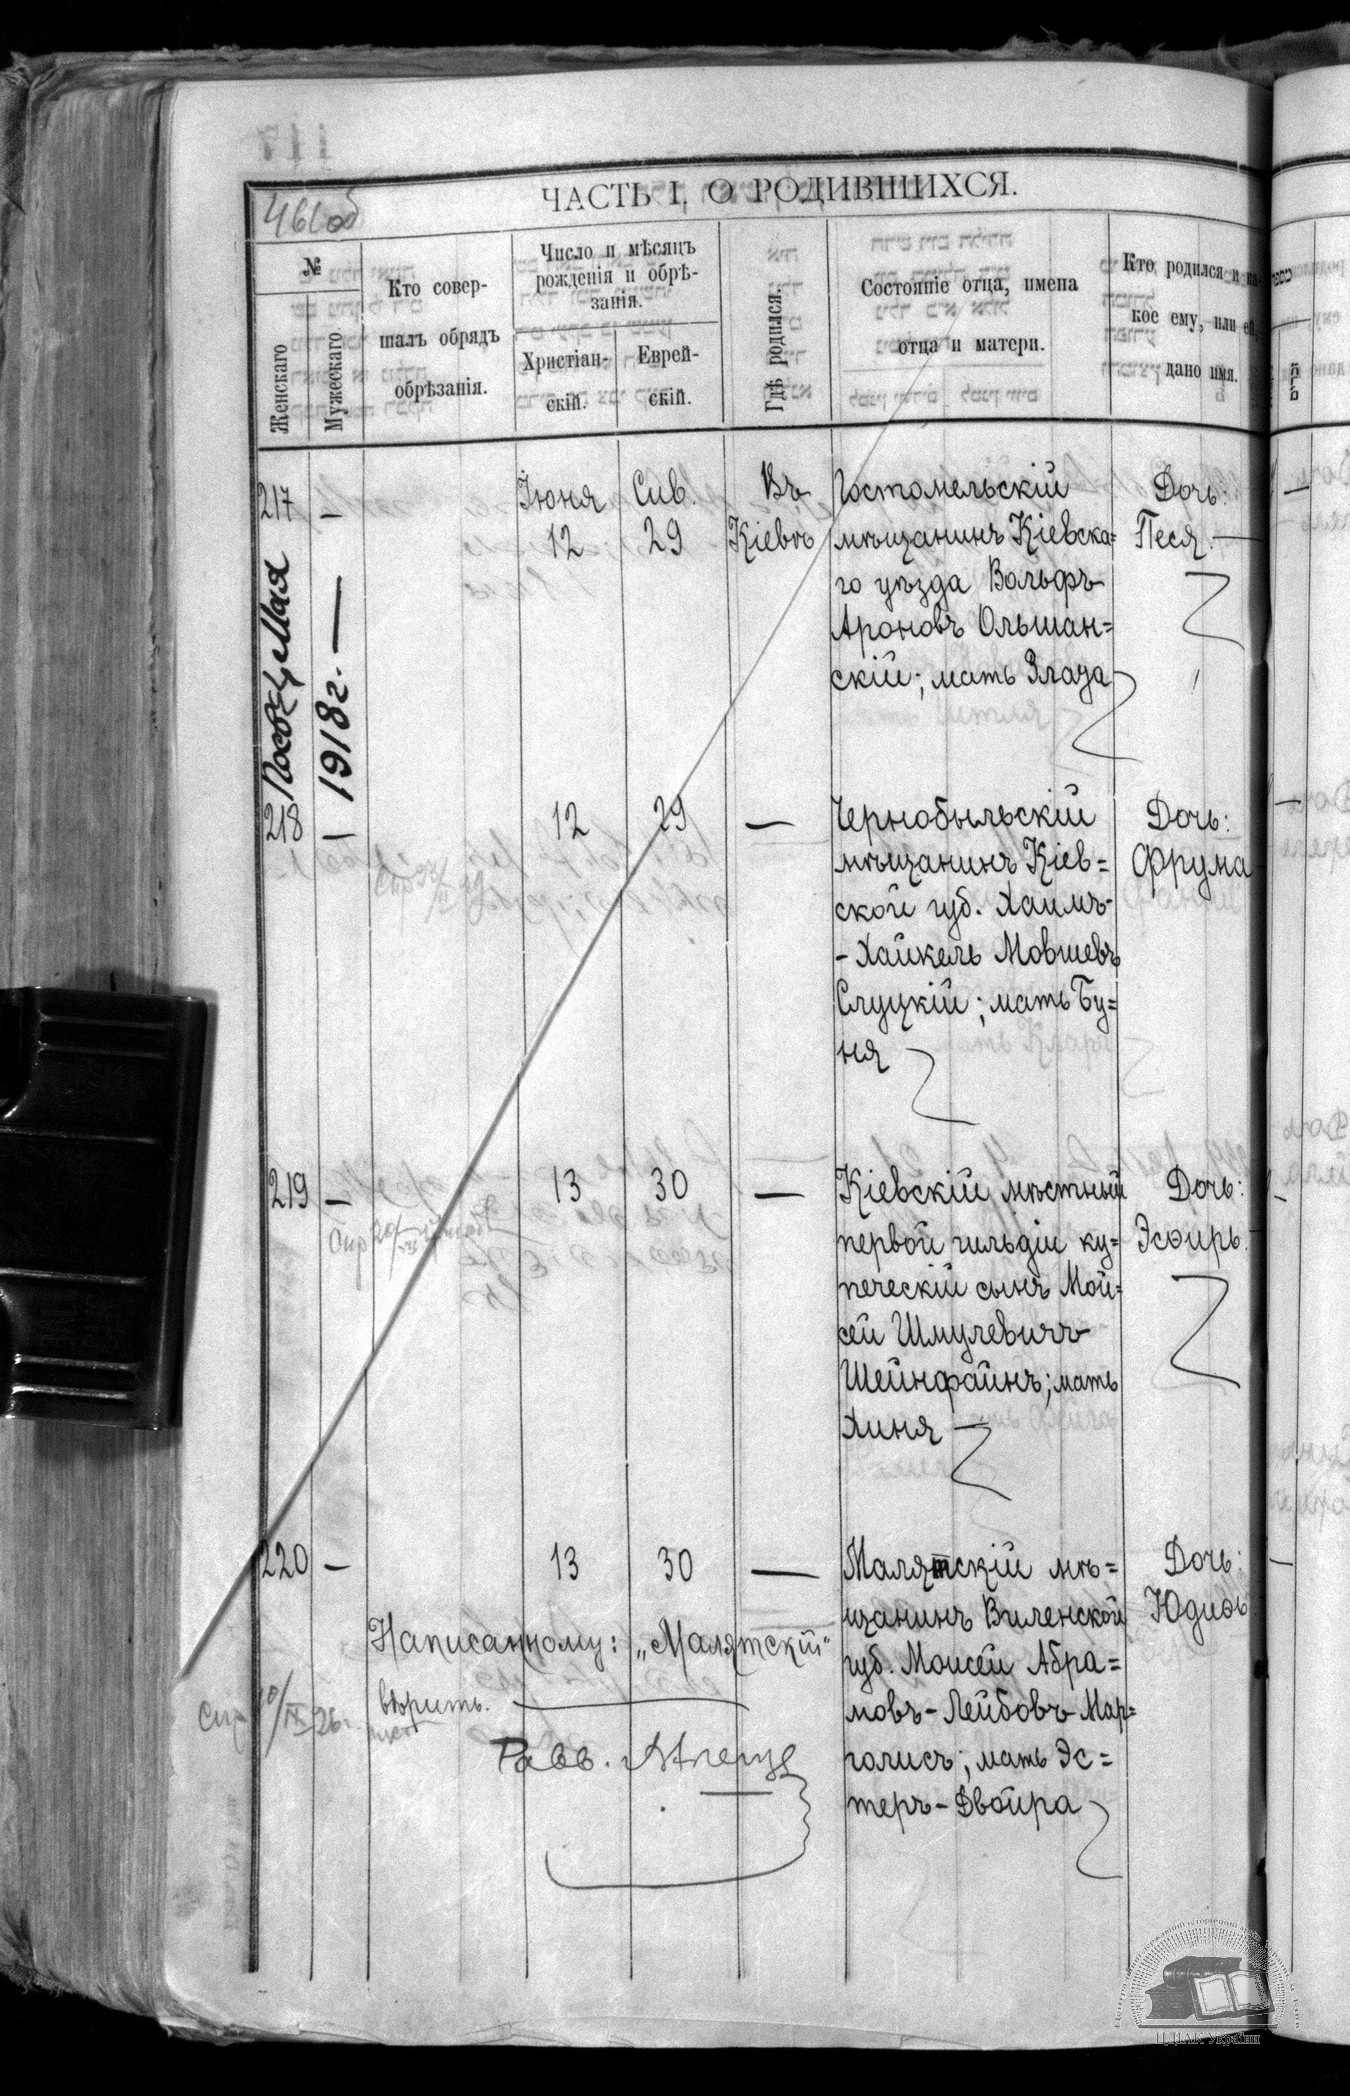 461 об
ЧАСТЬ I. О РОДИВШИХСЯ.
№
Женскаго
Мужескаго
Кто совер-
шалъ обрядъ
обрѣзанія.
Число и мѣсяцъ
рожденія и обрѣ-
занія.
Христіан-
скій.
Еврей-
скій.
Гдѣ родился.
Состояніе отца, имена
отца и матери.
Кто родился и ка-
кое ему, или ей,
дано имя.
217
—
Іюня
12
Сив.
29
Въ
Кіевѣ
Гостомельскій
мѣщанинъ Кіевска=
го уѣзда Вольфъ
Ароновъ Ольшан=
скій; мать Злата
Дочь:
Песя. —
Мая
1918 г. —
218
—
12
29
—
Чернобыльскій
мѣщанинъ Кіев=
ской губ. Хаимъ-
-Хайкель Мовшевъ
Слуцкій; мать Бу=
ня
Дочь:
Фрума
219
—
13
30
—
Кіевскій мѣстный
первой гильдіи ку=
печескій сынъ Мой=
сей Шмулевичъ
Шейнфайнъ; мать
Хиня —
Дочь:
Эсѳирь.
220
—
13
30
—
Малятскій мѣ=
щанинъ Виленской
губ. Моисей Абра=
мовъ-Лейбовъ Мар=
голисъ; мать Эс=
теръ-Двойра
Дочь:
Юдиѳь
Написанному: „Малятскій"
вѣрить.
Равв.
ЦДІАК України